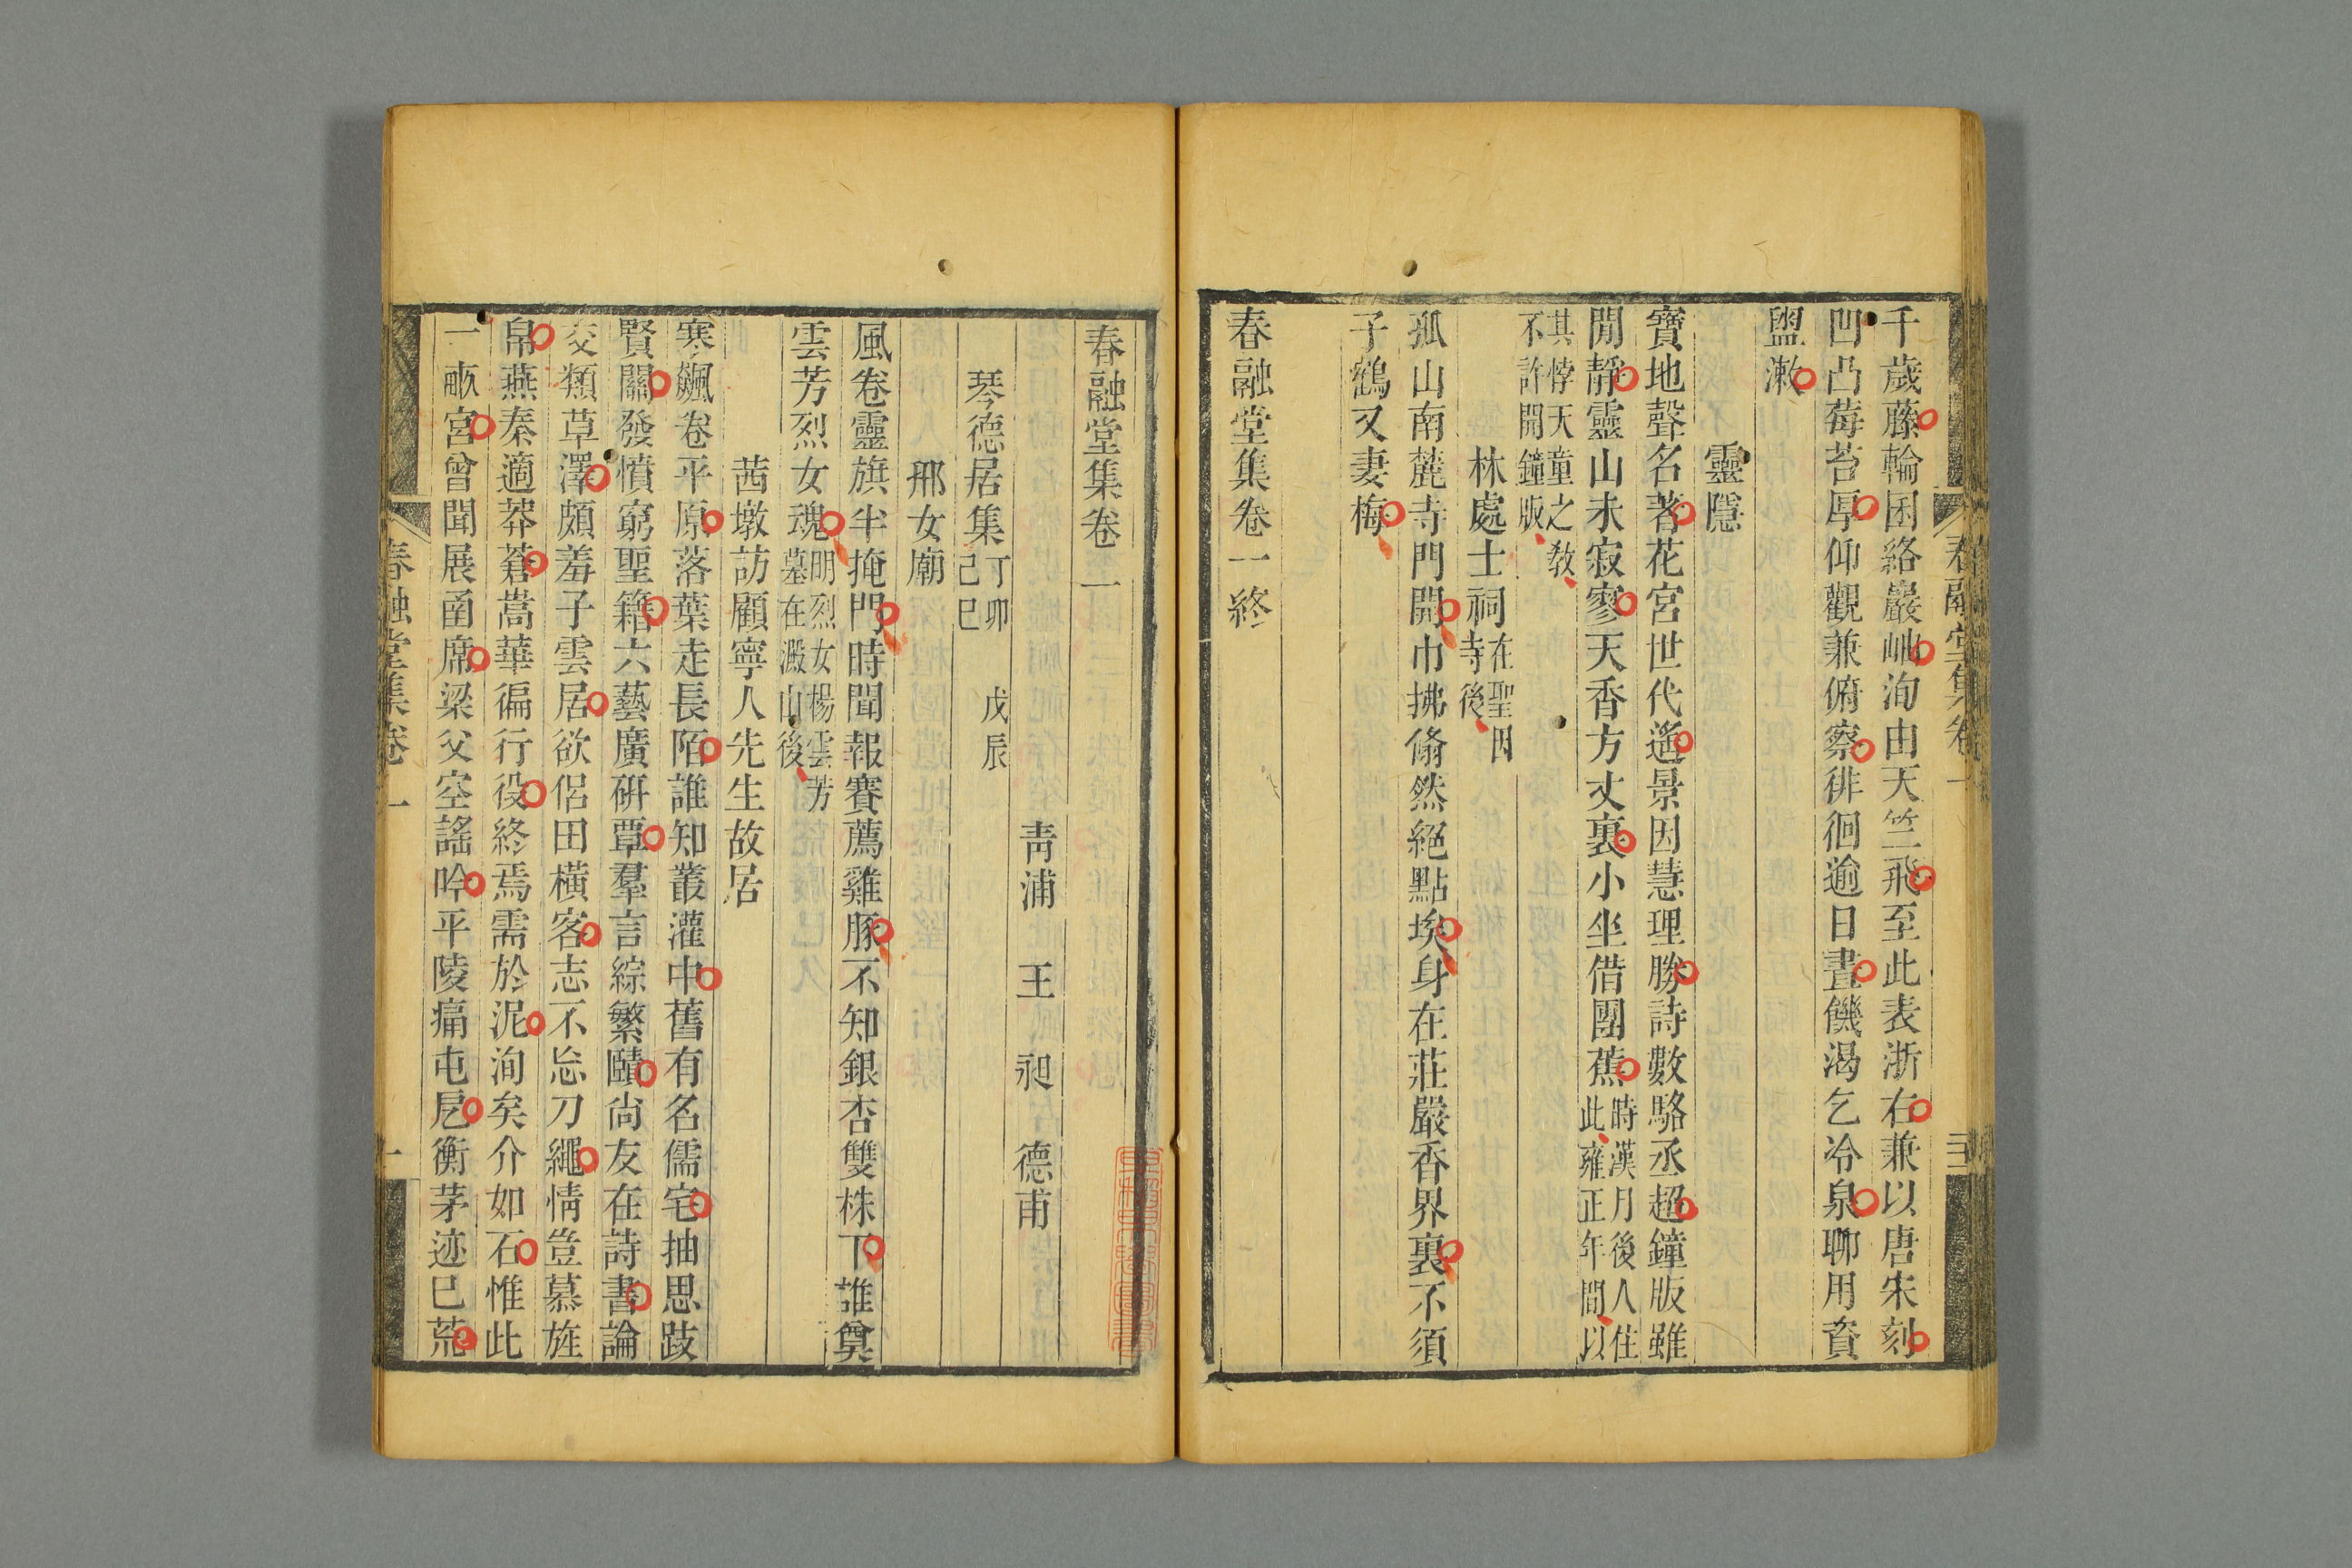 千歲藤輪囷絡巖岫洵由天竺飛至此表浙右兼以唐宋刻
凹凸莓苔厚仰觀兼俯察徘徊逾日晝饑渴乞冷泉聊用資
盥漱
靈隱
寶地聲名著花宮世代遙景因慧理勝詩數駱丞超鐘版雖
閒靜靈山未寂寥天香方丈裏小坐借團蕉時漢月後人住
此雍正年間以
其悖天童之教
不許開鐘版
林處士祠在聖因
寺後
孤山南麓寺門開巾拂翛然絕點埃身在莊嚴香界裏不須
子鶴又妻梅
春融堂集卷一終
春融堂集卷一
春融堂集卷二
青浦 王 昶 德甫
琴德居集丁卯 戊辰
己巳
邢女廟
風卷靈旗半掩門時聞報賽薦雞豚不知銀杏雙株下誰奠
雲芳烈女魂明烈女楊雲芳
墓在澱山後
茜墩訪顧寧人先生故居
寒飆卷平原落葉走長陌誰知叢灌中舊有名儒宅抽思跂
賢關發憤窮聖籍六藝廣研覃羣言綜繁賾尙友在詩書論
交類草澤頗羞子雲居欲侶田橫客志不忘刀繩情豈慕旌
帛燕秦適莽蒼嵩華徧行役終焉需於泥洵矣介如石惟此
一畝宮曾聞展函席梁父空謠吟平陵痛屯戹衡茅迹已荒
春融堂集卷二